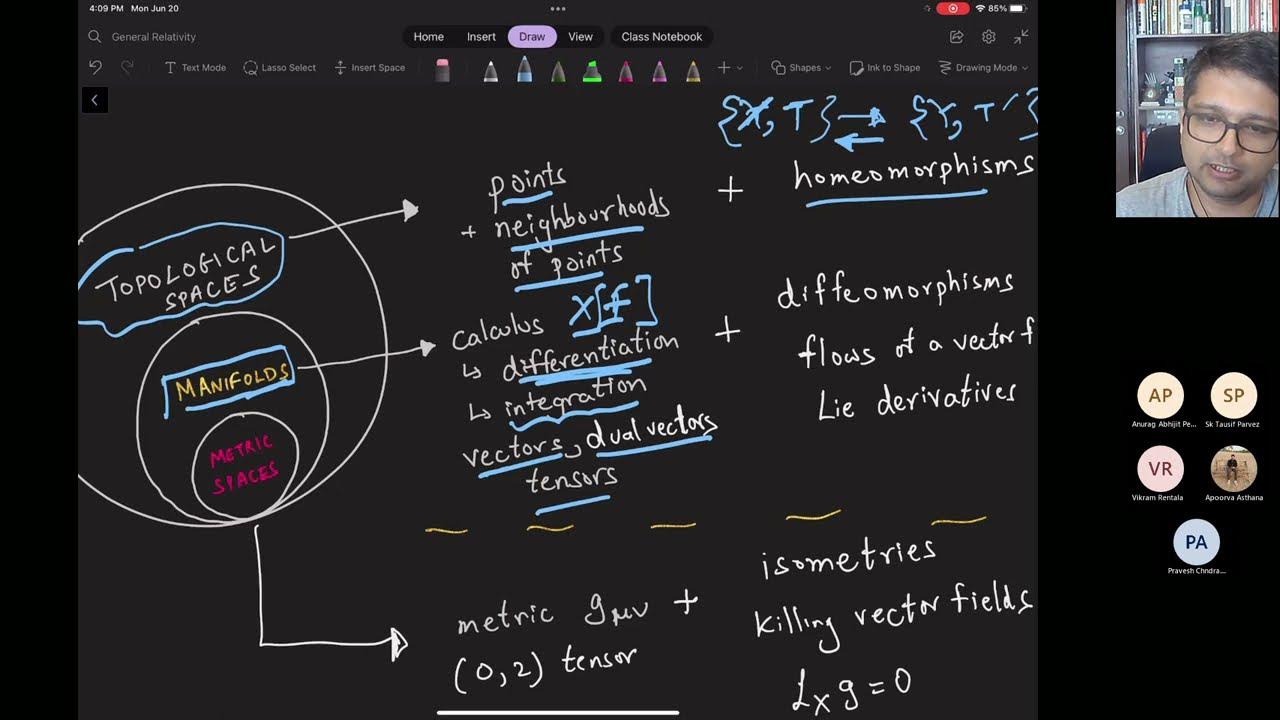 4:09 PM Mon Jun 20
85%
General Relativity
Home Insert Draw View Class Notebook
Text Mode Lasso Select Insert Space Shapes Ink to Shape Drawing Mode
{X, T} {Y, T'}
points + homeomorphisms
+ neighbourhoods
of points
TOPOLOGICAL
SPACES
X[f]
calculus + diffeomorphisms
↳ differentiation flows of a vector f
↳ integration Lie derivatives
vectors, dual vectors
tensors
MANIFOLDS
METRIC
SPACES
isometries
metric gμν + killing vector fields
(0,2) tensor
£X g = 0
AP SP
Anurag Abhijit Pe... Sk Tausif Parvez
VR
Vikram Rentala Apoorva Asthana
PA
Pravesh Chndra...